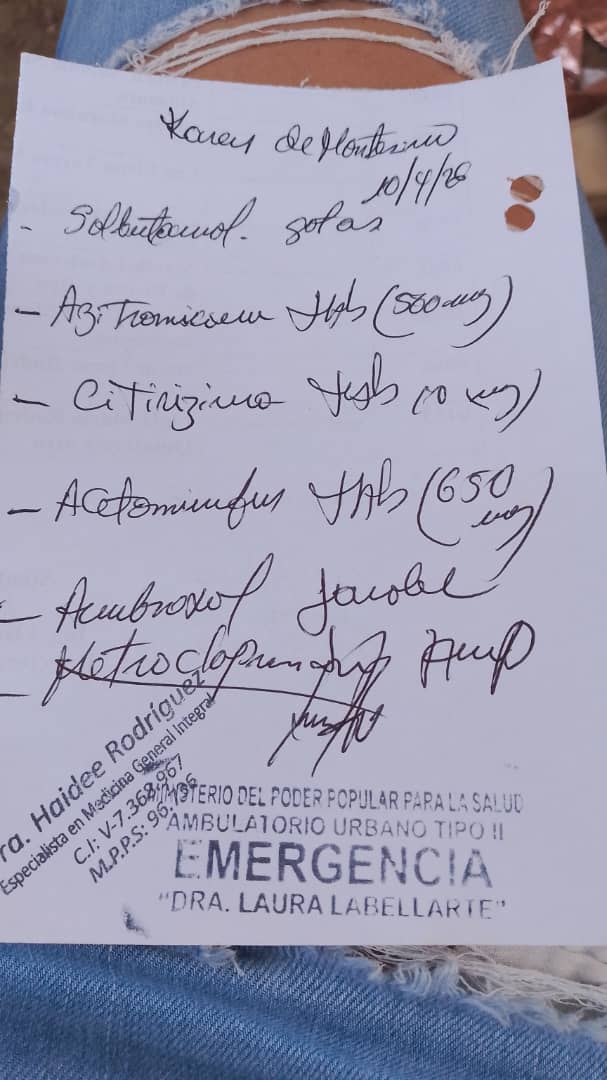 Karen de Montesino
10/4/26
- Salbutamol. gotas
- Azitromicina tab (500 mg)
- Citirizina tab (10 mg)
- Acetominofen tab (650 mg)
- Ambroxol Jarabe
- Metroclopramida Amp
ra. Haidee Rodríguez
Especialista en Medicina General Integral
C.I: V-7.368.967
M.P.P.S: 96.196
MINISTERIO DEL PODER POPULAR PARA LA SALUD
AMBULATORIO URBANO TIPO II
EMERGENCIA
"DRA. LAURA LABELLARTE"